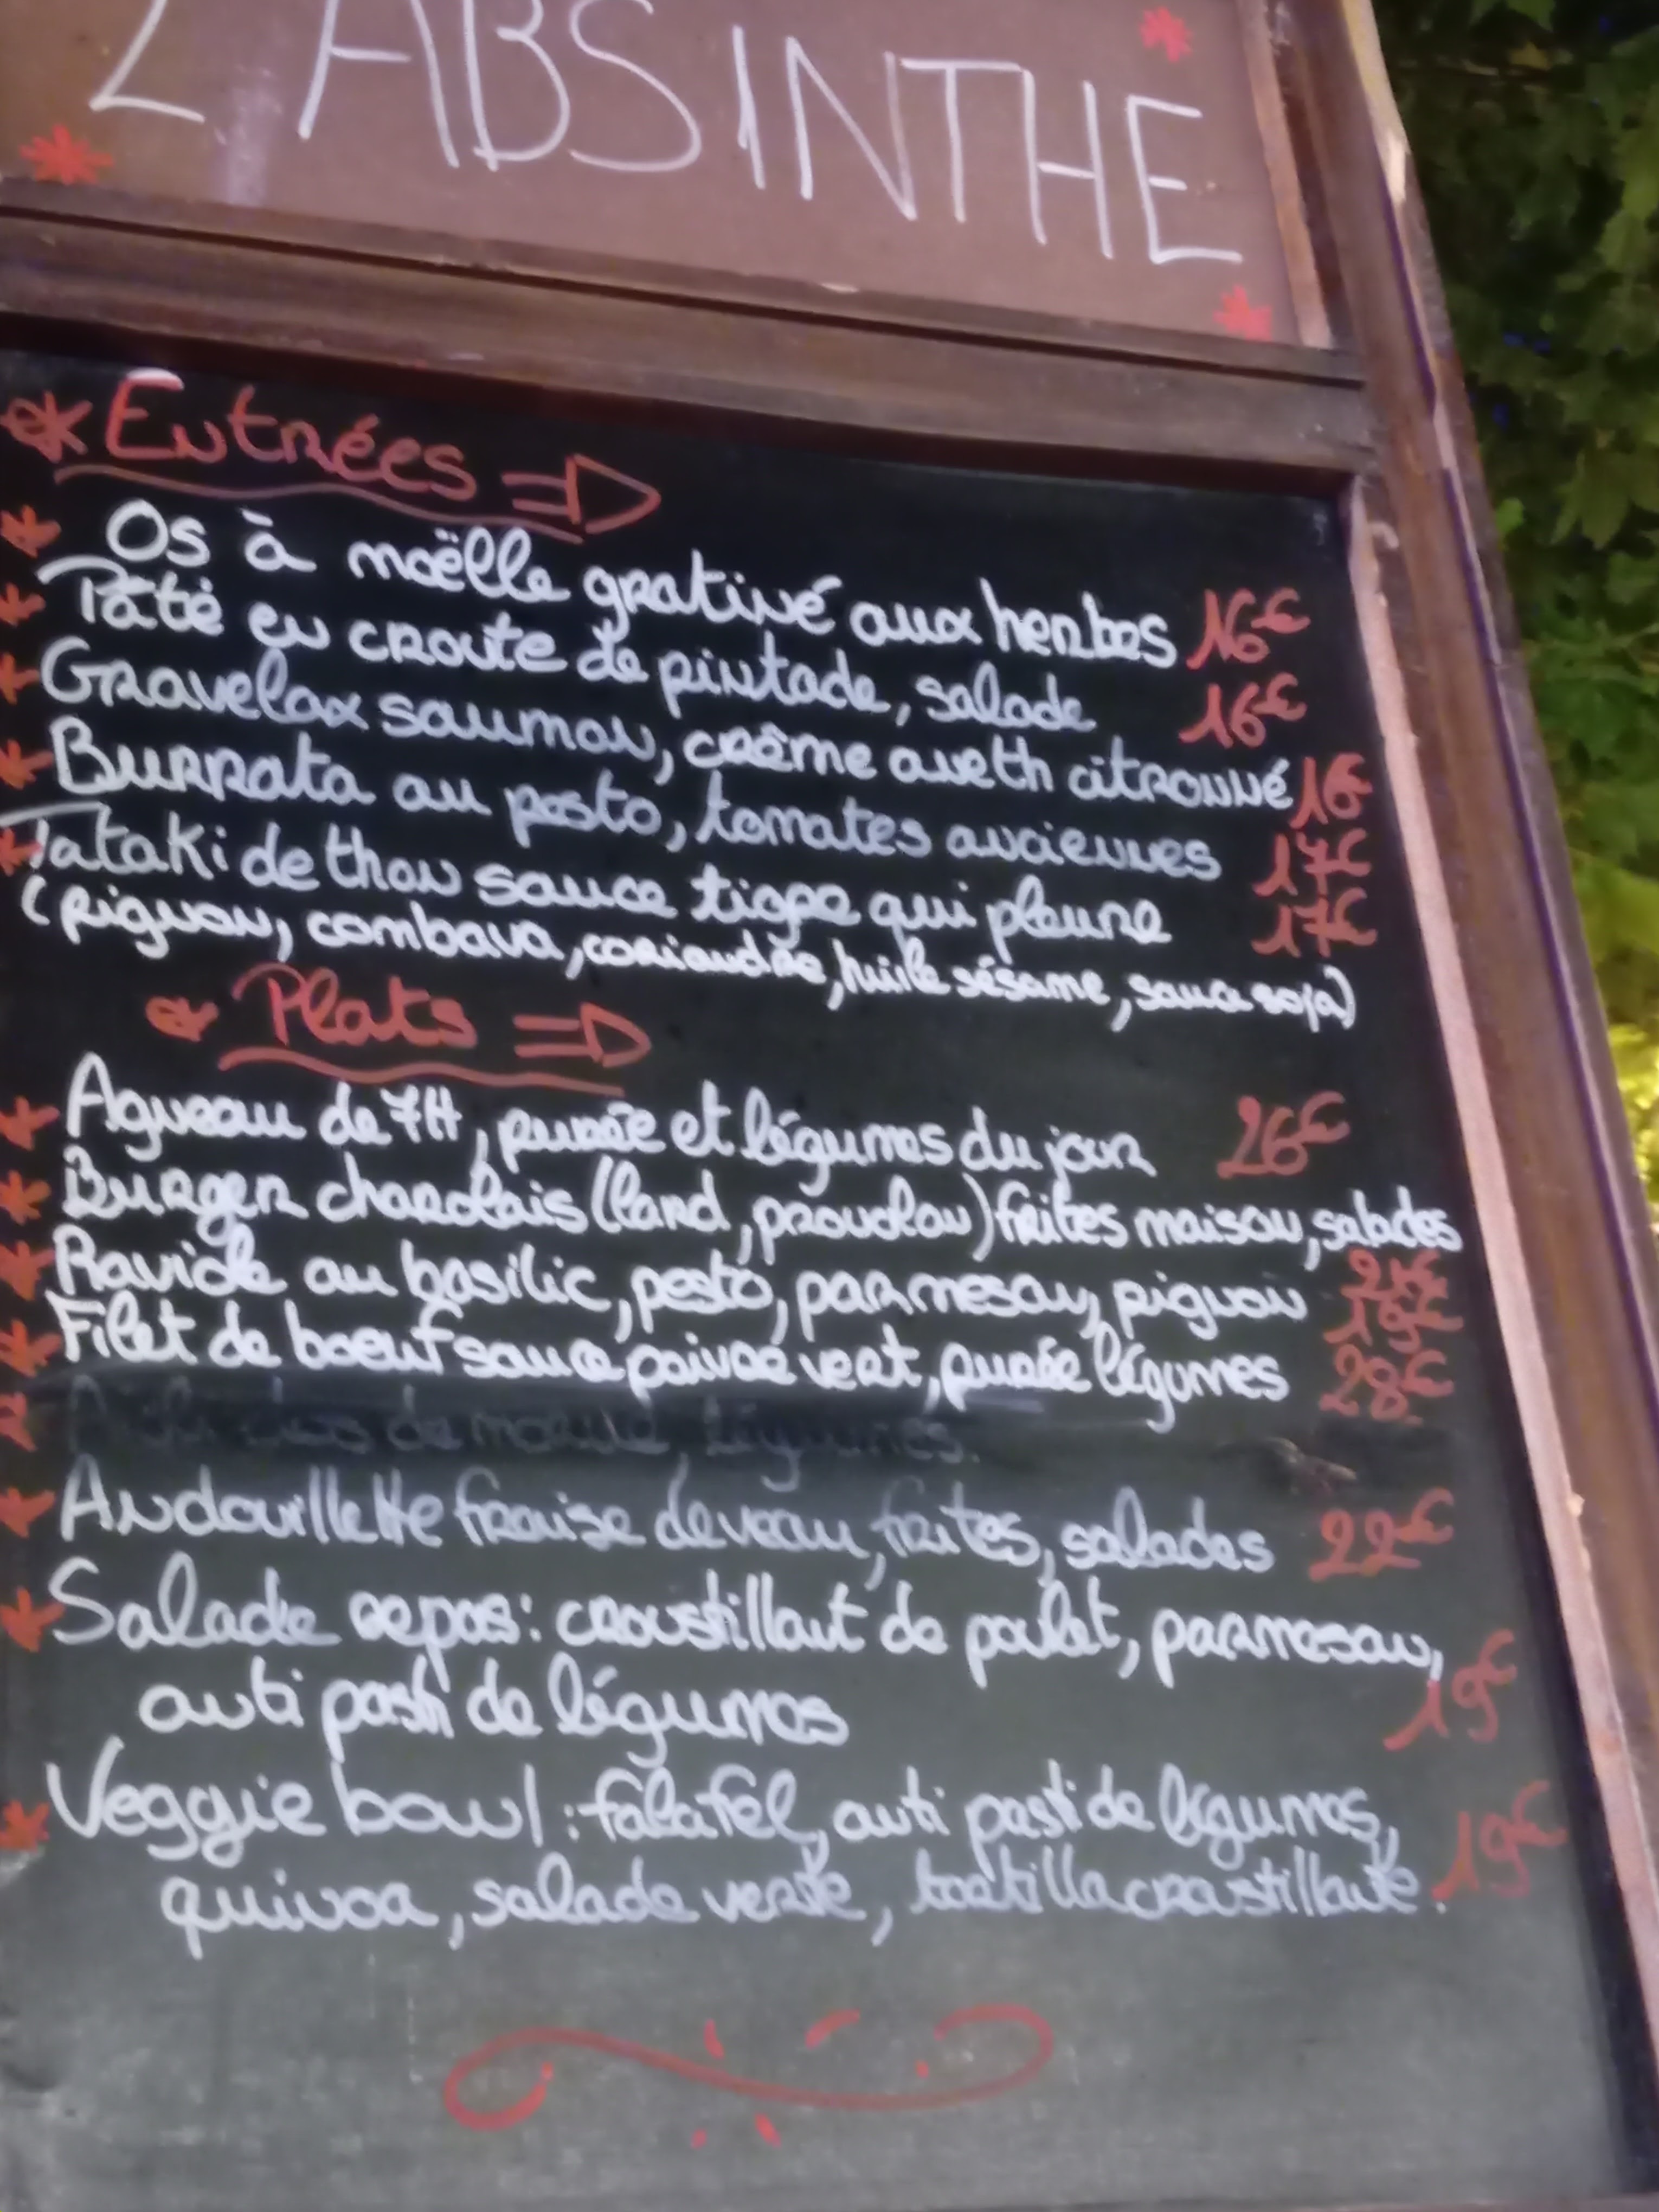 L'ABSINTHE
Entrées
Os à moëlle gratiné aux herbes 16€
Pâté en croute de pintade, salade 16€
Gravelax saumon, crème aneth citronné 16€
Burrata au pesto, tomates anciennes 17€
Tataki de thon sauce tigre qui pleure 17€
(pignon, combava, coriandre, huile sésame, sauce soja)
Plats
Agneau de 7H, purée et légumes du jour 26€
Burger charolais (lard, provolon) frites maison, salades
Raviole au basilic, pesto, parmesan, pignon 19€
Filet de boeuf sauce poivre vert, purée légumes 28€
de morue, légumes.
Andouillette fraise de veau, frites, salades 22€
Salade repas: croustillant de poulet, parmesan,
anti pasti de légumes 19€
Veggie bowl: falafel, anti pasti de légumes,
quinoa, salade verte, tortilla croustillante. 19€